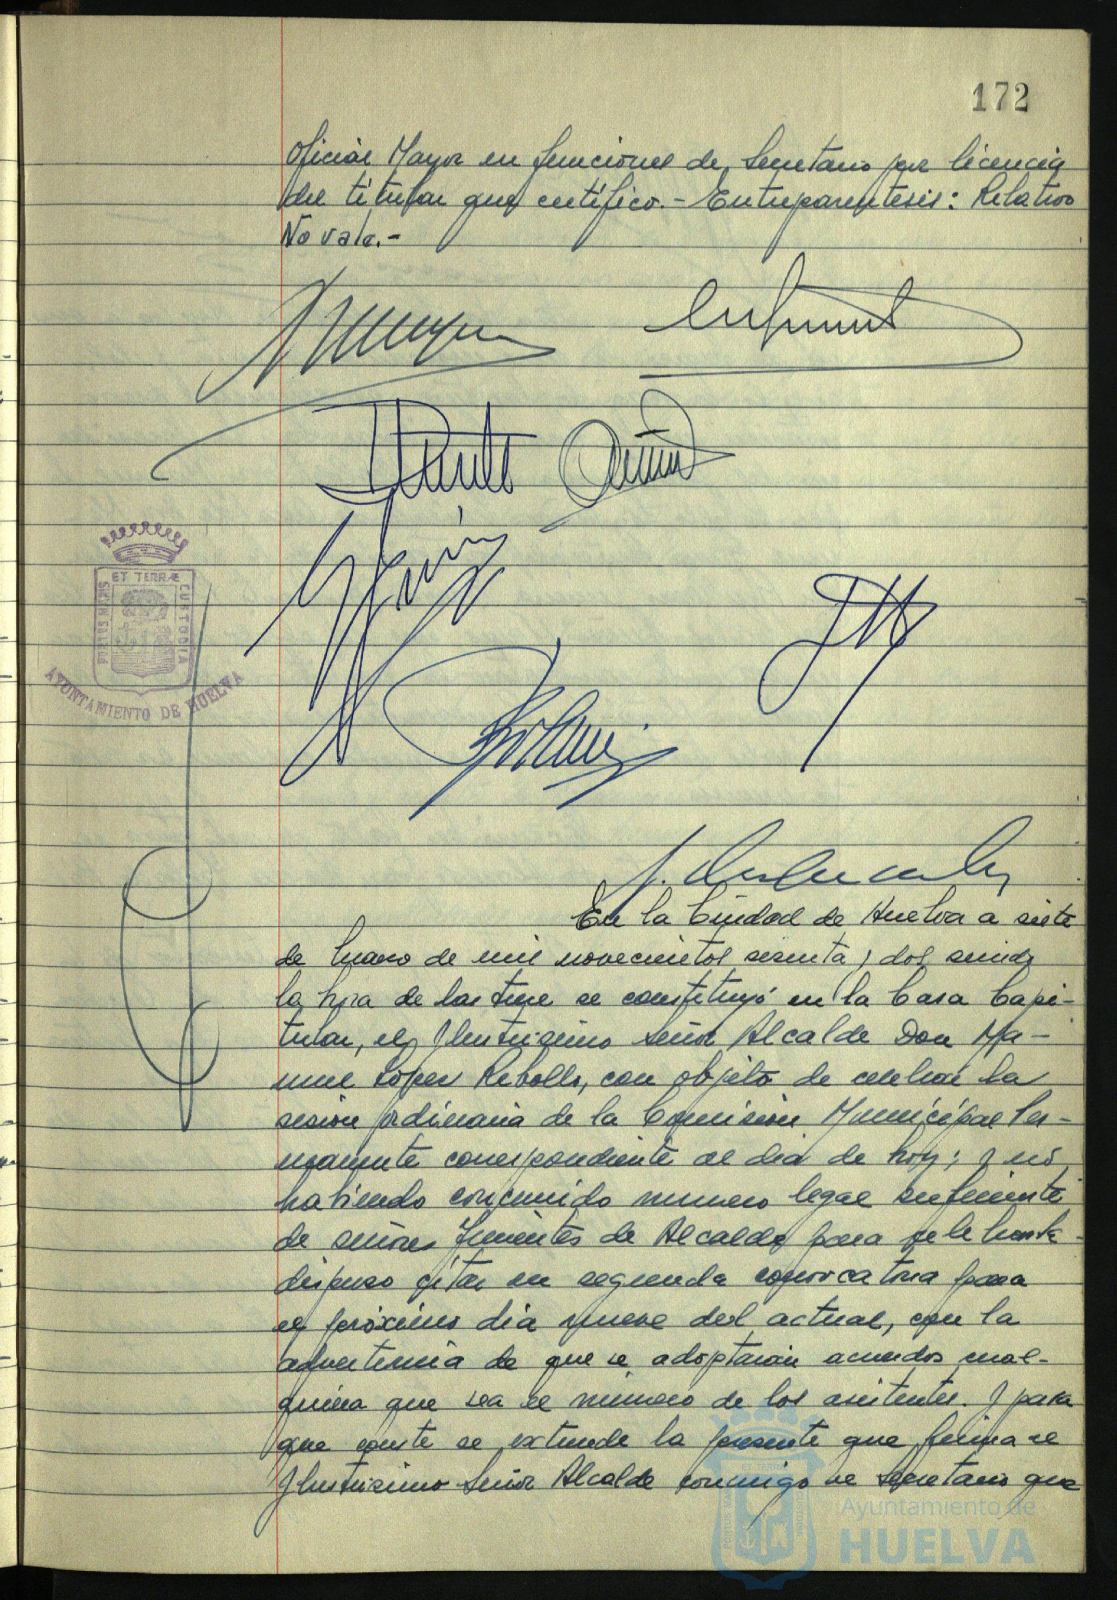 172
Oficial Mayor en funciones de Secretario por licencia
del titular que certifico.- Entreparentesis: Relativo
No vale.-
ET TERRÆ
PORTUS MARIS
CUSTODIA
AYUNTAMIENTO DE HUELVA
En la Ciudad de Huelva a siete
de marzo de mil novecientos sesenta y dos siendo
la hora de las trece se constituyó en la Casa Capi-
tular, el Ilustrisimo señor Alcalde Don Ma-
nuel López Rebollo, con objeto de celebrar la
sesión ordinaria de la Comisión Municipal Per-
manente correspondiente al dia de hoy; y no
habiendo concurrido numero legal suficiente
de señores Tenientes de Alcalde para
dispuso citar en segunda convocatoria para
el próximo dia nueve del actual, con la
advertencia de que se adoptarán acuerdos cual-
quiera que sea el número de los asistentes. Y para
que conste se extiende la presente que firma el
Ilustrisimo Señor Alcalde conmigo el Secretario que
Ayuntamiento de
HUELVA